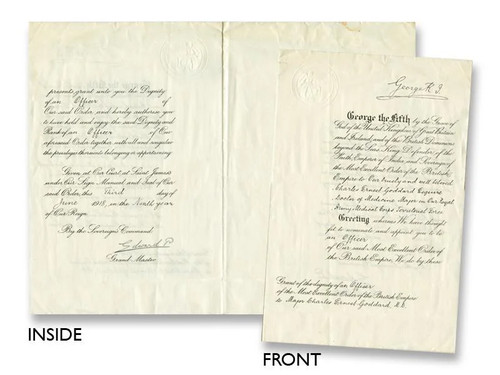 presents grant unto you the Dignity
of an Officer of
Our said Order and hereby authorise you
to have hold and enjoy the said Dignity and
Rank of an Officer of Our
aforesaid Order together with all and singular
the privileges thereunto belonging or appertaining
Given at Our Court at Saint James's
under Our Sign Manual and Seal of Our
said Order this Third day of
June 1918 in the Ninth year
of Our Reign.
By the Sovereign's Command
Edward P.
Grand Master.
INSIDE
George R. I.
George the Fifth by the Grace of
God of the United Kingdom of Great Britain
and Ireland and of the British Dominions
beyond the Seas King Defender of the
Faith Emperor of India and Sovereign of
the Most Excellent Order of the British
Empire to Our trusty and well beloved
Charles Ernest Goddard Esquire
Doctor of Medicine Major in Our Royal
Army Medical Corps Territorial Force
Greeting whereas We have thought
fit to nominate and appoint you to be
an Officer
of Our said Most Excellent Order of
the British Empire We do by these
Grant of the dignity of an Officer
of the Most Excellent Order of the British Empire
to Major Charles Ernest Goddard, M.D.
FRONT